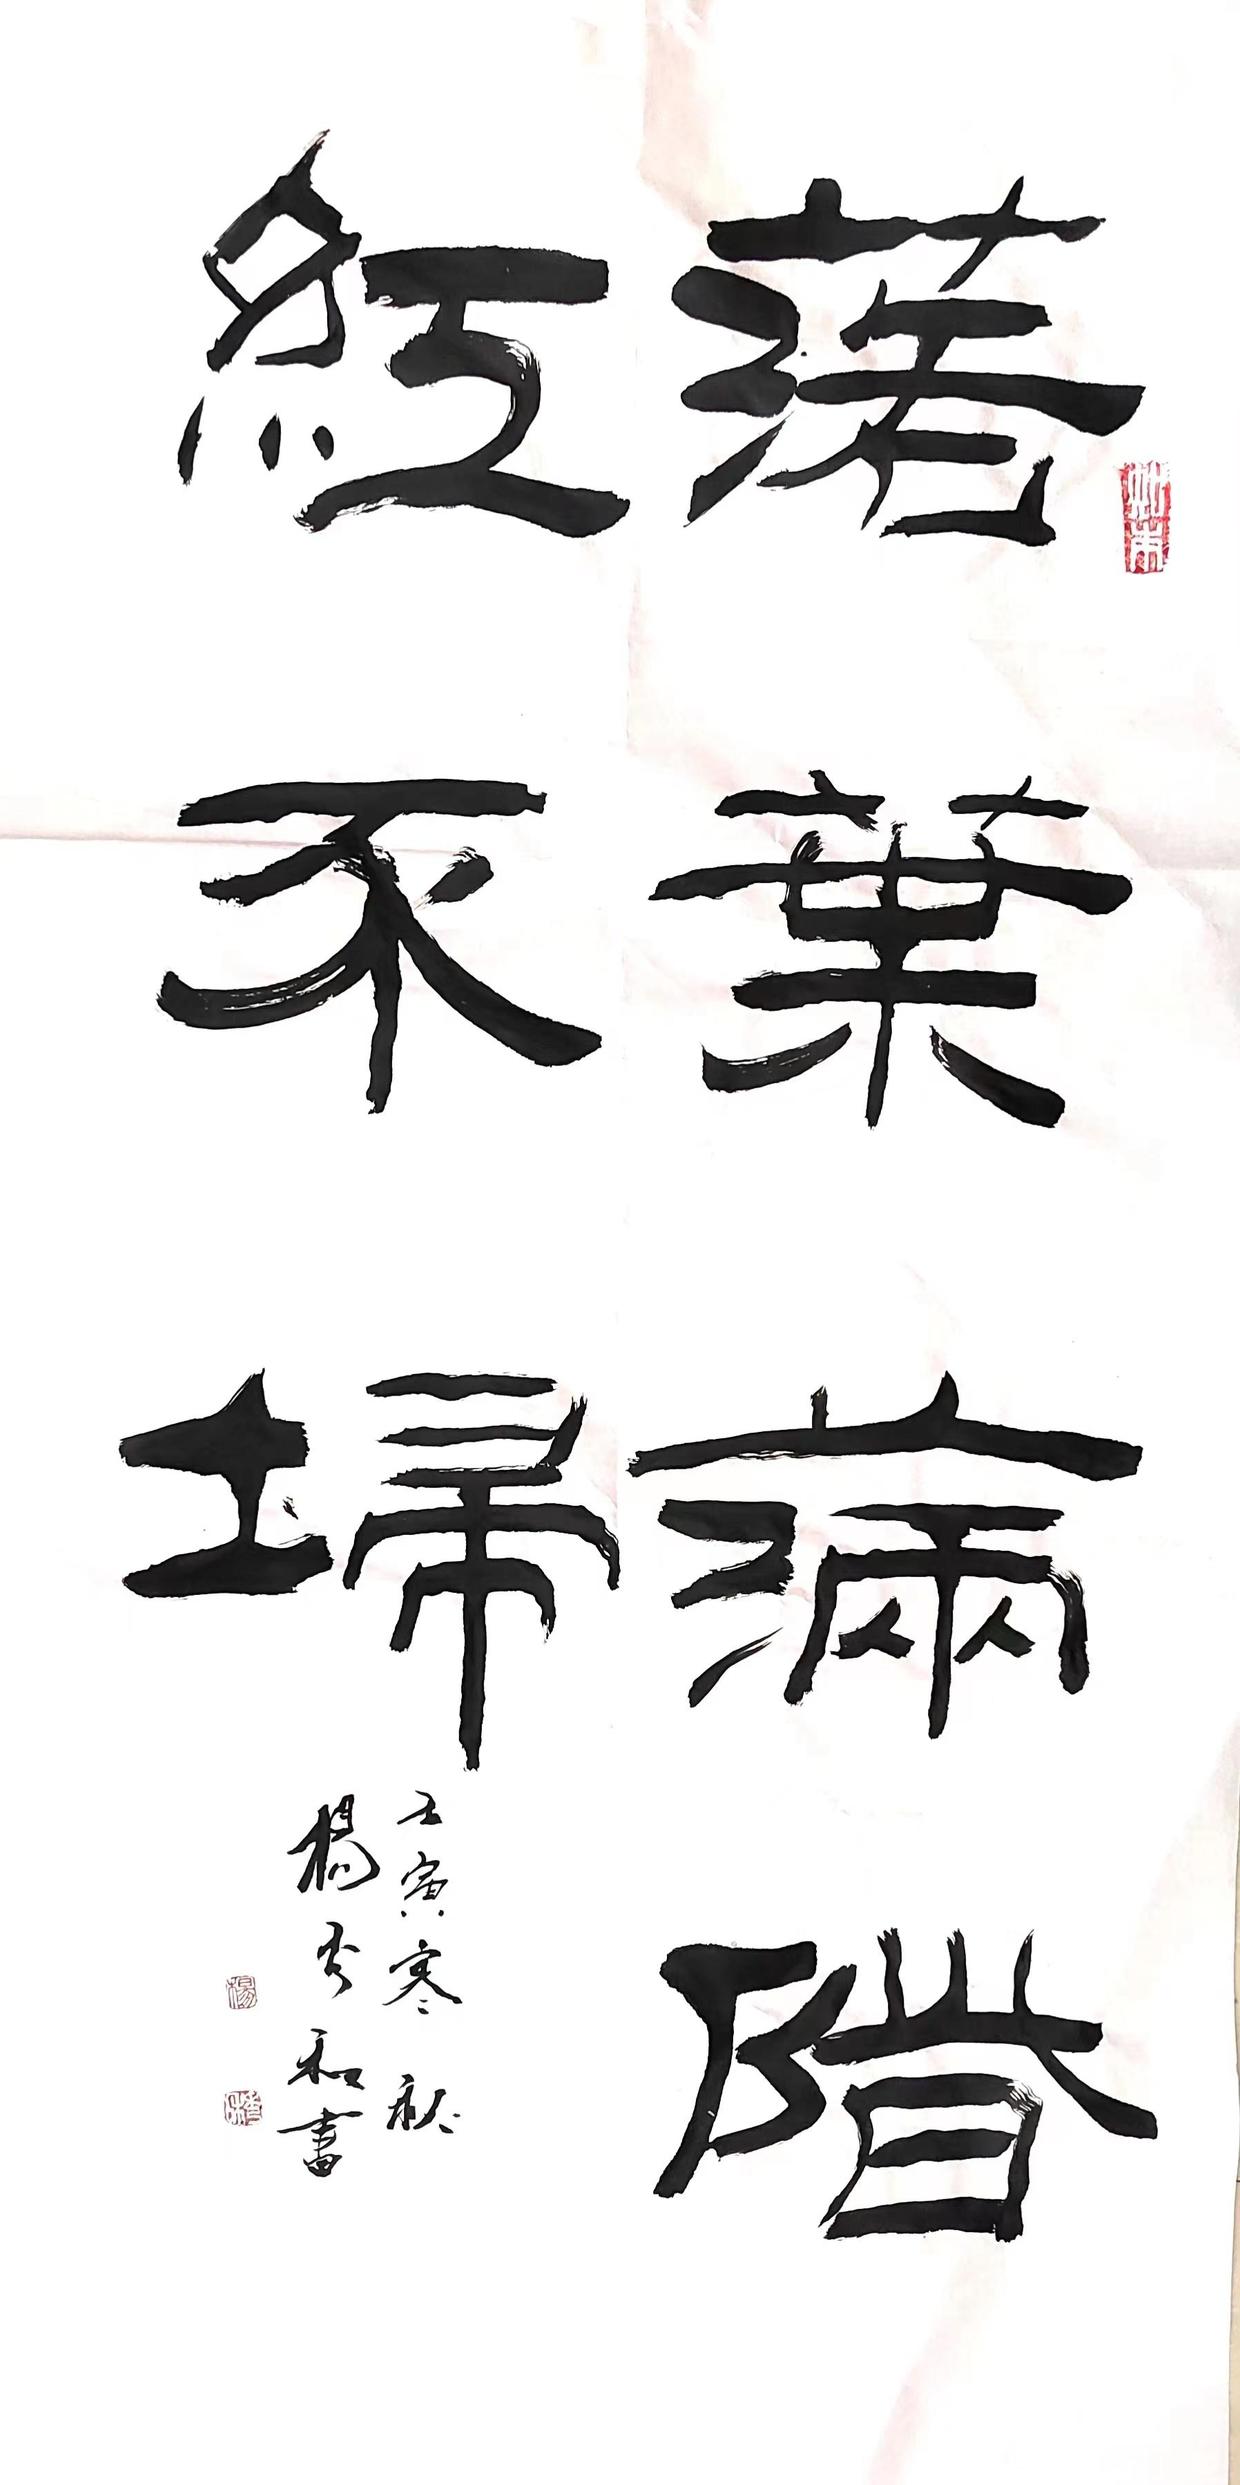 落葉滿階
紅不埽
壬寅寒秋
楊秀和書
楊